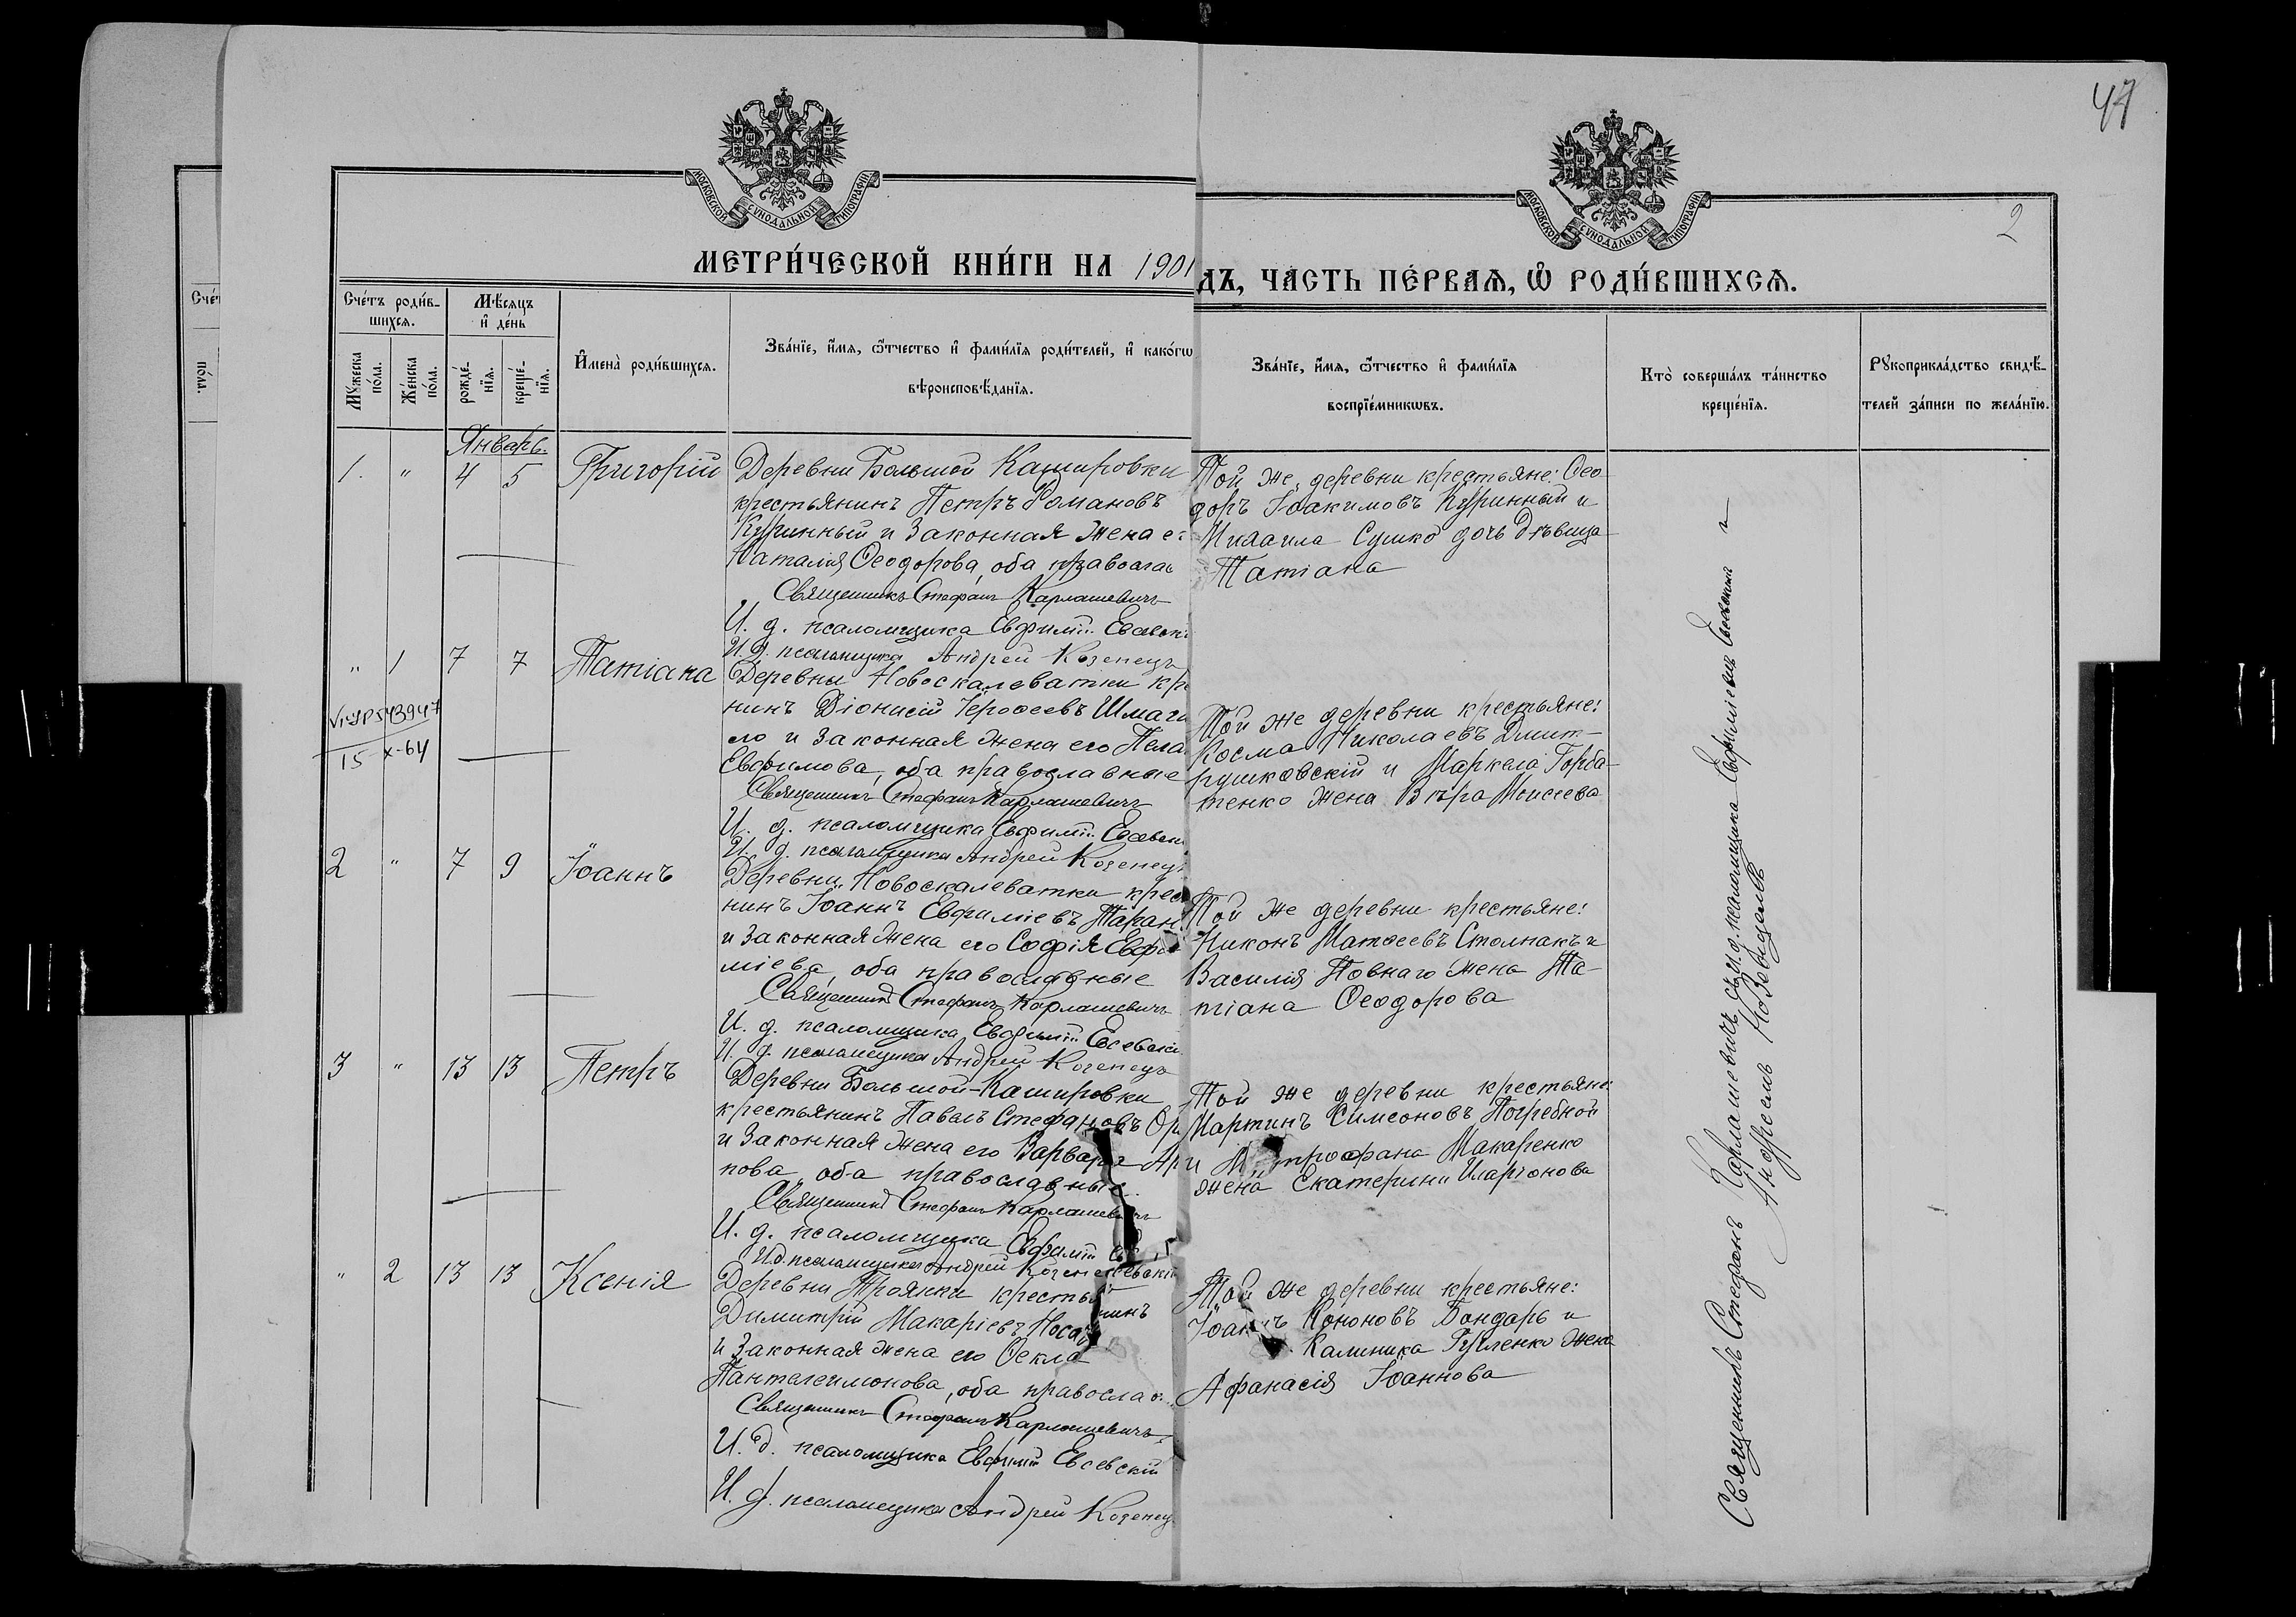 47
2
МОСКОВСКОЙ СѴНОДАЛЬНОЙ ТИПОГРАФІИ
МОСКОВСКОЙ СѴНОДАЛЬНОЙ ТИПОГРАФІИ
МЕТРИ́ЧЕСКОЙ КНИ́ГИ НА 1901
ДЪ, ЧАСТЬ ПЕ́РВАѦ, Ѡ РОДИ́ВШИХСѦ.
Сче́тъ роди́в-
шихся.
Мѣ́сяцъ
и҆ де́нь
Мꙋ́жеска
по́ла.
Же́нска
по́ла.
рожде́-
нїя.
креще́-
нїя.
И҆мена̀ роди́вшихся.
Зва́нїе, и҆́мя, ѻ҆́тчество и҆ фами́лїя роди́телей, и҆ како́гѡ
вѣроисповѣ́данїя.
Зва́нїе, и҆́мя, ѻ҆́тчество и҆ фами́лїя
воспрїе́мникѡвъ.
Кто̀ соверша́лъ та́инство
креще́нїя.
Рꙋкоприкла́дство свидѣ́-
телей за́писи по жела́нїю.
Январь.
1. " 4 5 Григорій
Деревни Большой Кашировки
крестьянинъ Петръ Романовъ
Куринный и законная жена ег
Наталія Ѳеодорова, оба православ
Священникъ Стефанъ Карлашевичъ
И. д. псаломщика Евфимій Евсевск
И. д. псаломщика Андрей Козенецъ
Той же деревни крестьяне: Ѳео-
доръ Іоакимовъ Куринный и
Михаила Сушко дочь дѣвица
Татіана
" 1 7 7 Татіана
15-X-64
Деревни Новоскалеватки кре
нинъ Діонисій Іероѳеевъ Шмаги
ло и законная жена его Пела
Евфимова, оба православные
Священникъ Стефанъ Карлашевичъ
И. д. псаломщика Евфимій Евсевск
И. д. псаломщика Андрей Козенецъ
Той же деревни крестьяне:
Косма Николаевъ Дмит-
рушковскій и Маркела Горба-
тенко жена Вѣра Моисеева
2 " 7 9 Іоаннъ
Деревни Новоскалеватки крес
нинъ Іоаннъ Евфиміевъ Таран
и законная жена его Софія Евфи
міева, оба православные
Священникъ Стефанъ Карлашевичъ
И. д. псаломщика Евфимій Евсевскі
И. д. псаломщика Андрей Козенецъ
Той же деревни крестьяне:
Никонъ Матѳеевъ Столпакъ и
Василія Повнаго жена Та-
тіана Ѳеодорова
3 " 13 13 Петръ
Деревни Большой-Кашировки
крестьянинъ Павелъ Стефановъ
и законная жена его Варвара
пова, оба православные.
Священникъ Стефанъ Карлашевичъ
И. д. псаломщика Евфимій
И. д. псаломщика Андрей
Той же деревни крестьяне:
Мартинъ Симеоновъ Погребной
и Митрофана Макаренко
жена Екатерина Иларіонова
" 2 13 13 Ксенія
Деревни Троянки крестьянинъ
Димитрій Макаріевъ
и законная жена его Ѳекла
Пантелеимонова, оба православ
Священникъ Стефанъ Карлашевичъ
И. д. псаломщика Евфимій Евсевскій
И. д. псаломщика Андрей Козенец
Той же деревни крестьяне:
Іоаннъ Кононовъ Бондарь и
Калиника Гуленко жена
Афанасія Іоаннова
Священникъ Стефанъ Карлашевичъ съ и. д. псаломщика Евфиміемъ Евсевскимъ и
Андреемъ